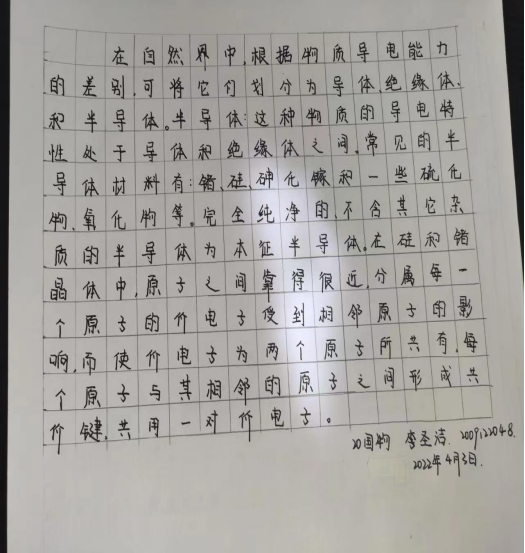 在自然界中,根据物质导电能力
的差别,可将它们划分为导体绝缘体、
和半导体。半导体:这种物质的导电特
性处于导体和绝缘体之间,常见的半
导体材料有:锗、硅、砷化镓和一些硫化
物、氧化物等。完全纯净的、不含其它杂
质的半导体为本征半导体。在硅和锗
晶体中,原子之间靠得很近,分属每一
个原子的价电子受到相邻原子的影
响,而使价电子为两个原子所共有,每
个原子与其相邻的原子之间形成共
价键,共用一对价电子。
20国物 李圣洁. 2009122048.
2022年4月3日.